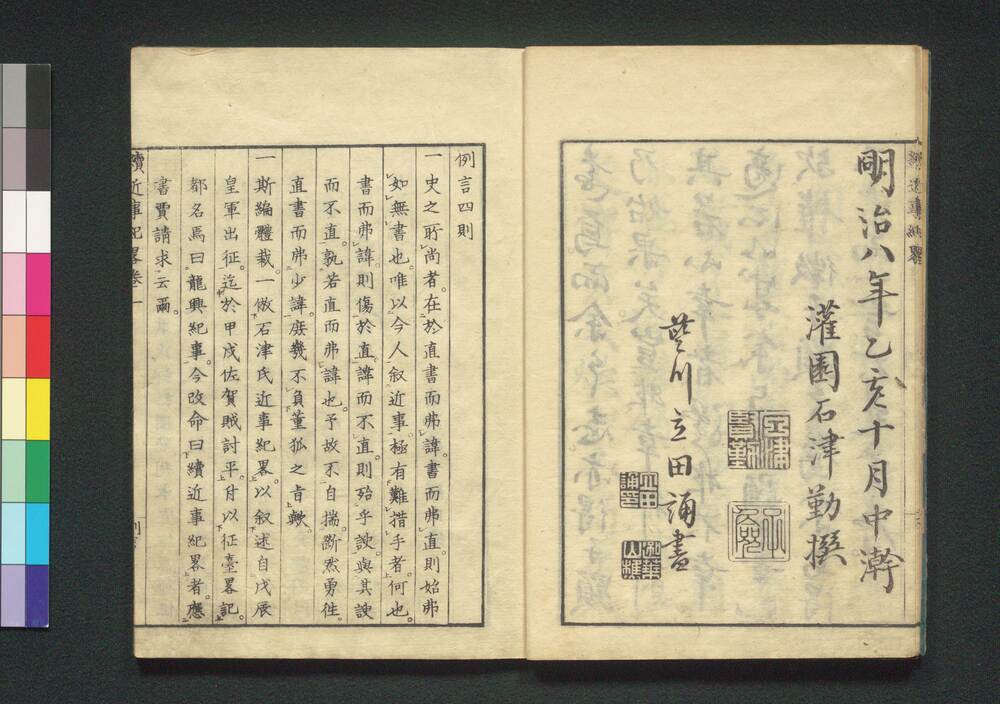 明治八年乙亥十月中澣
灌園石津勤撰
立田誦書
例言四則
一史之所尚者。在於直書而弗諱。書而弗直。則始弗
如無書也。唯以今人叙近事。極有難措手者。何也。
書而弗諱。則傷於直。諱而不直。則殆乎諛。與其諛
而不直。孰若直而弗諱也。予故不自揣。斷然勇往。
直書而弗少諱。庶幾不負董狐之旨歟。
一斯編體裁。一倣石津氏近事紀畧。以叙述自戊辰
皇軍出征。迄於甲戌佐賀賊討平。附以征臺畧記。
都名焉曰龍興紀事。今改命曰續近事紀畧者。應
書賈請求云爾。
續近事紀畧卷一